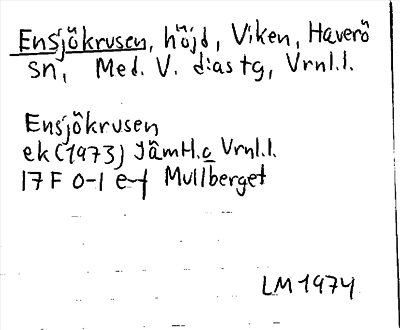 Ensjökrusen, höjd, Viken, Haverö
sn, Med. V. d:as tg, Vrnl.l.
Ensjökrusen
ek (1973) JämH.c Vrnl.l.
17 F 0-1 e-f Mullberget
LM 1974